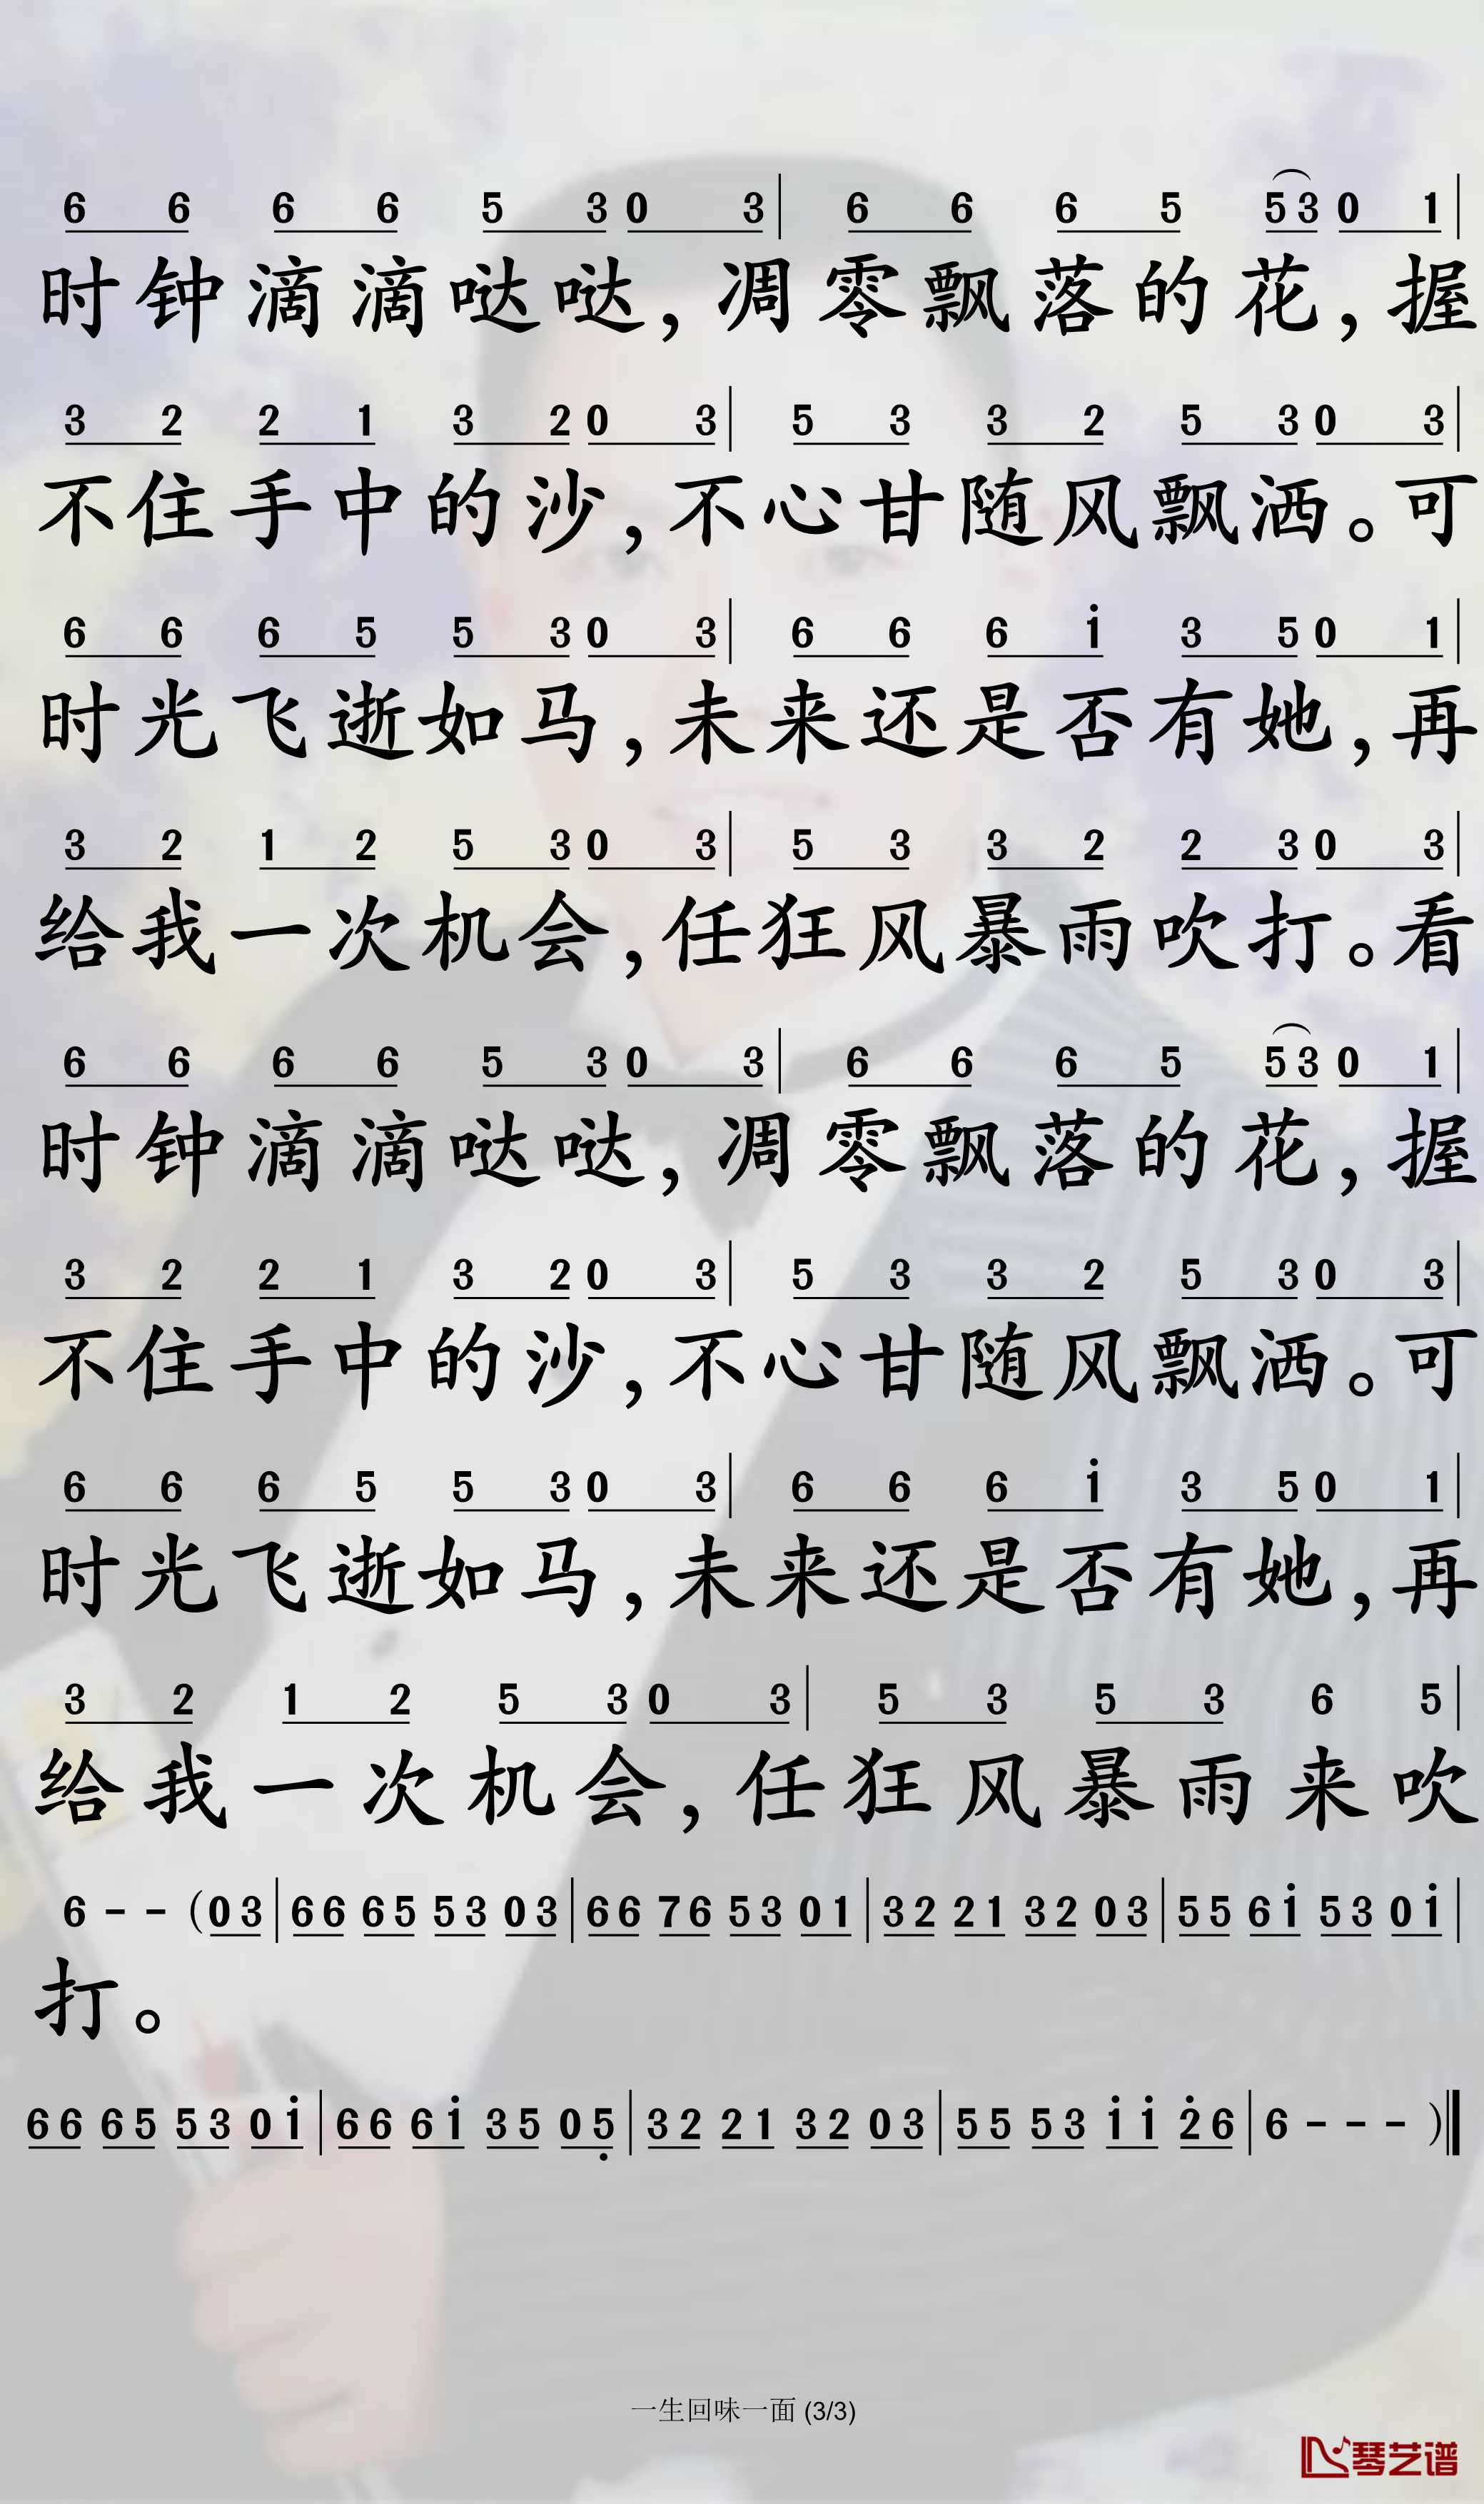 6 6 6 6 5 3 0 3 | 6 6 6 5 5 3 0 1 |
时钟滴滴哒哒，凋零飘落的花，握
3 2 2 1 3 2 0 3 | 5 3 3 2 5 3 0 3 |
不住手中的沙，不心甘随风飘洒。可
6 6 6 5 5 3 0 3 | 6 6 6 i 3 5 0 1 |
时光飞逝如马，未来还是否有她，再
3 2 1 2 5 3 0 3 | 5 3 3 2 2 3 0 3 |
给我一次机会，任狂风暴雨吹打。看
6 6 6 6 5 3 0 3 | 6 6 6 5 5 3 0 1 |
时钟滴滴哒哒，凋零飘落的花，握
3 2 2 1 3 2 0 3 | 5 3 3 2 5 3 0 3 |
不住手中的沙，不心甘随风飘洒。可
6 6 6 5 5 3 0 3 | 6 6 6 i 3 5 0 1 |
时光飞逝如马，未来还是否有她，再
3 2 1 2 5 3 0 3 | 5 3 5 3 6 5 |
给我一次机会，任狂风暴雨来吹
6 - - (0 3 | 6 6 6 5 5 3 0 3 | 6 6 7 6 5 3 0 1 | 3 2 2 1 3 2 0 3 | 5 5 6 i 5 3 0 i |
打。
6 6 6 5 5 3 0 i | 6 6 6 i 3 5 0 5̣ | 3 2 2 1 3 2 0 3 | 5 5 5 3 i i 2̇ 6 | 6 - - - )‖
一生回味一面 (3/3)
琴艺谱